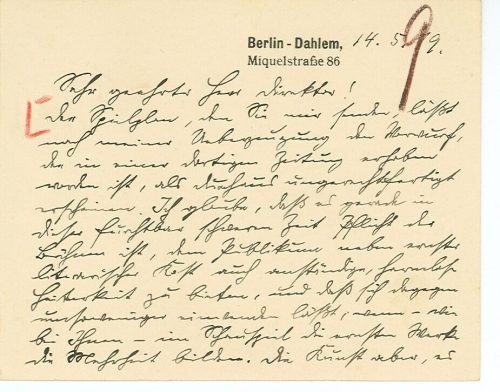 Berlin-Dahlem, 14. 5. 19.
Miquelstraße 86
9
Sehr geehrter Herr Direktor!
Der Spielplan, den Sie mir senden, läßt
nach meiner Ueberzeugung den Vorwurf,
der in einer dortigen Zeitung erhoben
worden ist, als durchaus ungerechtfertigt
erscheinen. Ich glaube, daß es gerade in
dieser furchtbar schweren Zeit Pflicht der
Bühnen ist, dem Publikum neben ernster
literarischer Kost auch anständige, harmlose
Heiterkeit zu bieten, und daß sich dagegen
umsoweniger einwenden läßt, wenn – wie
bei Ihnen – im Schauspiel die ernsten Werke
die Mehrheit bilden. Die Kunst aber, es